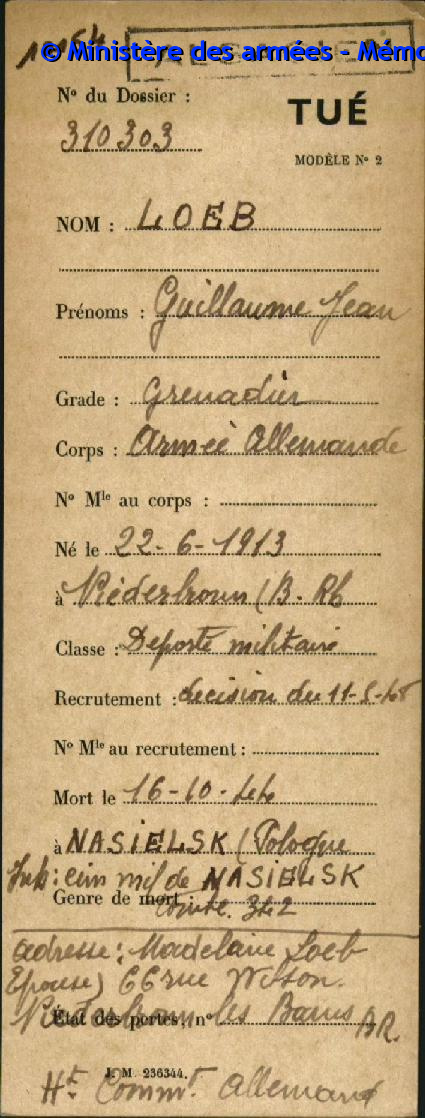 © Ministère des armées - Mémo
N° du Dossier :
310303
TUÉ
MODÈLE N° 2
NOM : LOEB
Prénoms : Guillaume Jean
Grade : Grenadier
Corps : Armée Allemande
N° Mle au corps :
Né le 22-6-1913
à Niederbronn (B. Rh
Classe : Déporté militaire
Recrutement : décision du 11-5-48
N° Mle au recrutement :
Mort le 16-10-44
à NASIELSK (Pologne
Inh: cim mil de NASIELSK
Genre de mort : tombe 342
adresse: Madelaine Loeb
Epouse) 66 rue Wilson.
Niederbronn les Bains BR.
État des pertes, n°
J. M. 236344.
Ht Commt Allemand